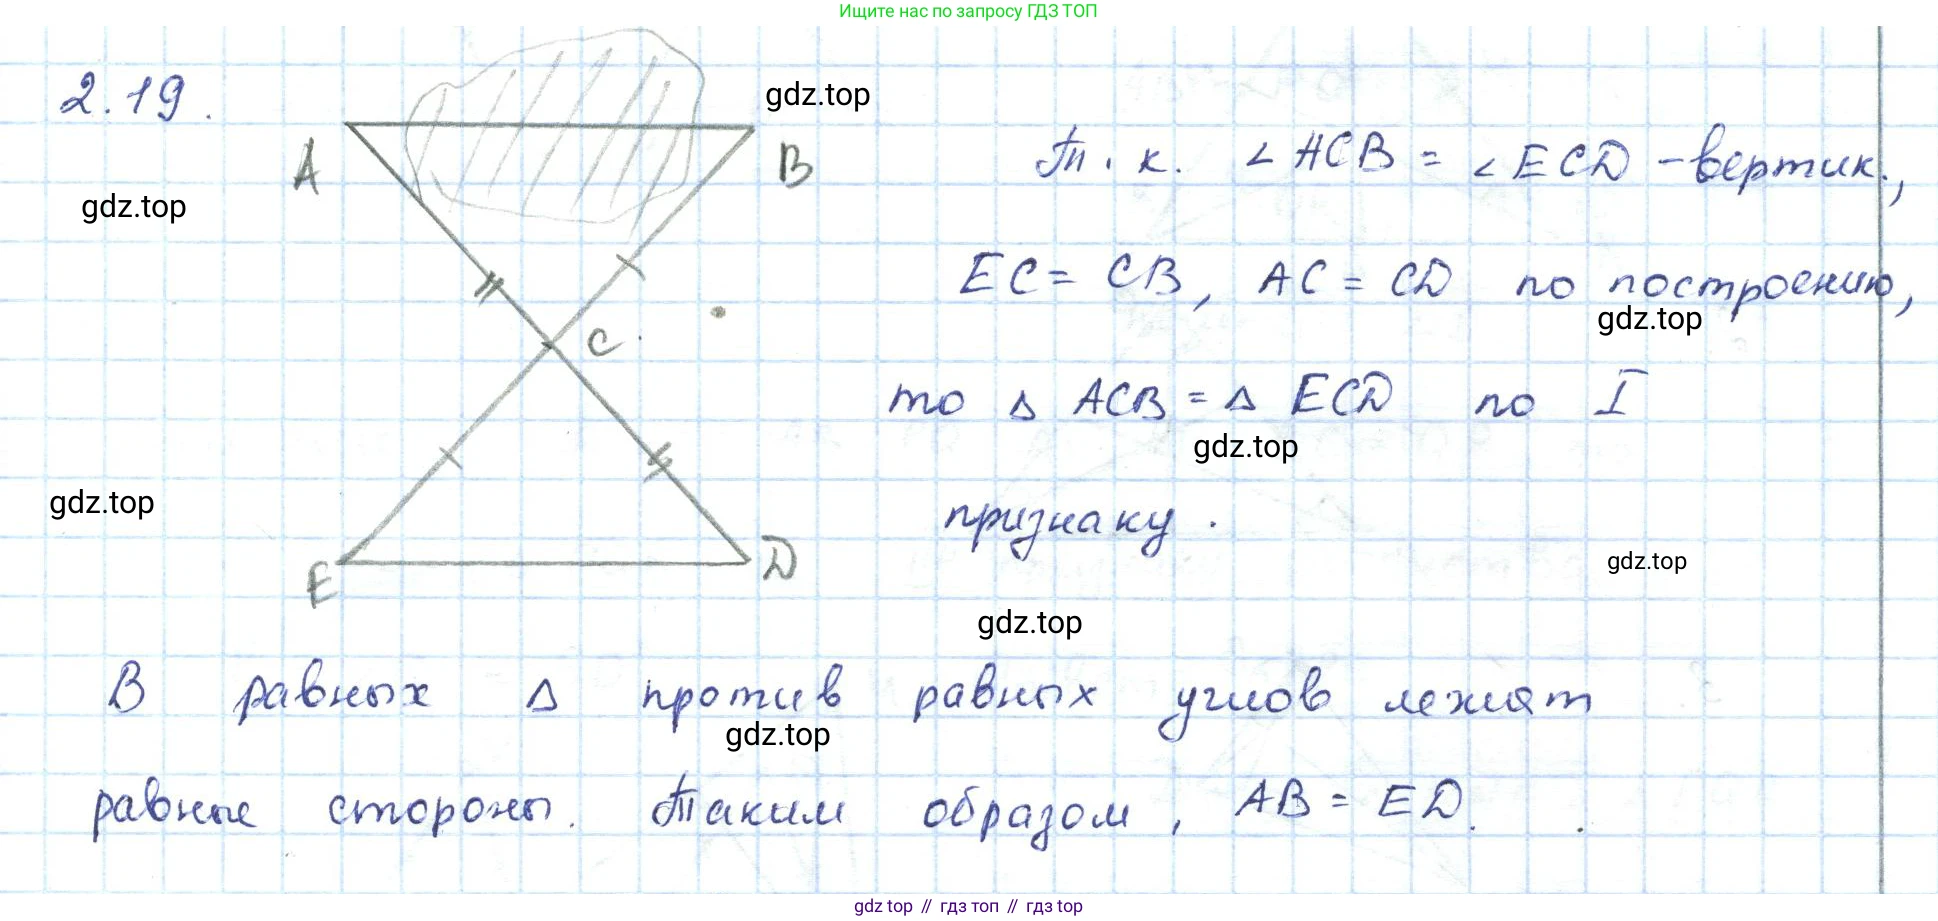 Ищите нас по запросу ГДЗ ТОП
2.19.
gdz.top
A
B
Т.к. ∠ACB = ∠ECD – вертик.,
gdz.top
EC = CB, AC = CD по построению,
gdz.top
C
то Δ ACB = Δ ECD по I
gdz.top
gdz.top
признаку.
gdz.top
E
D
gdz.top
В равных Δ против равных углов лежат
gdz.top
равные стороны. Таким образом, AB = ED.
gdz top // гдз топ // гдз top